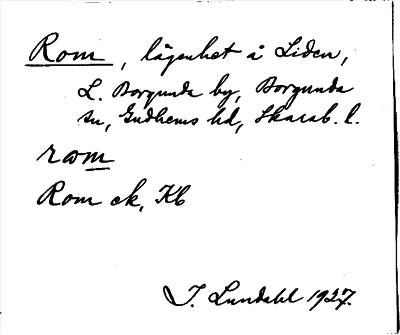 Rom, lägenhet å Liden,
L. Borgunda by, Borgunda
sn, Gudhems hd, Skarab. l.
rom
Rom ek, Kb
I. Lundahl 1927.